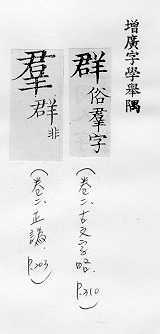 增廣字學舉隅
群俗羣字
（卷二．古文字略．P.210）
羣群非
（卷二．正譌．P.203）